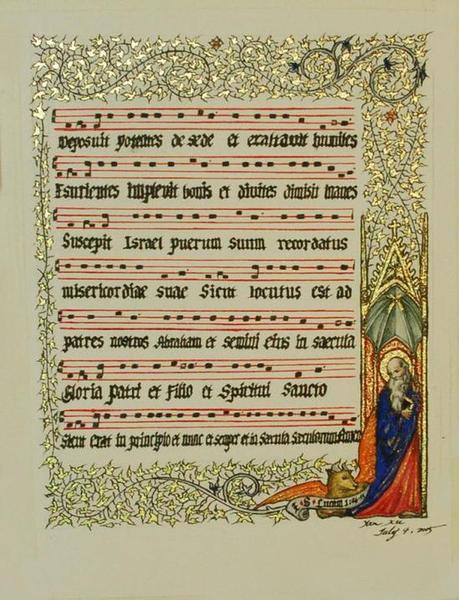 Deposuit potentes de sede et exaltavit humiles
Esurientes implevit bonis et divites dimisit inanes
Suscepit Israel puerum suum recordatus
misericordiae suae Sicut locutus est ad
patres nostros Abraham et semini eius in saecula
Gloria Patri et Filio et Spiritui Sancto
Sicut erat in principio et nunc et semper et in Saecula Saeculorum Amen
S Lucas
July 4, 2005